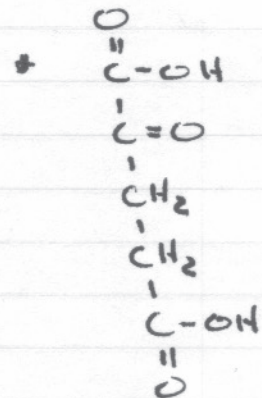 O
||
* C-OH
|
C=O
|
CH₂
|
CH₂
|
C-OH
||
O